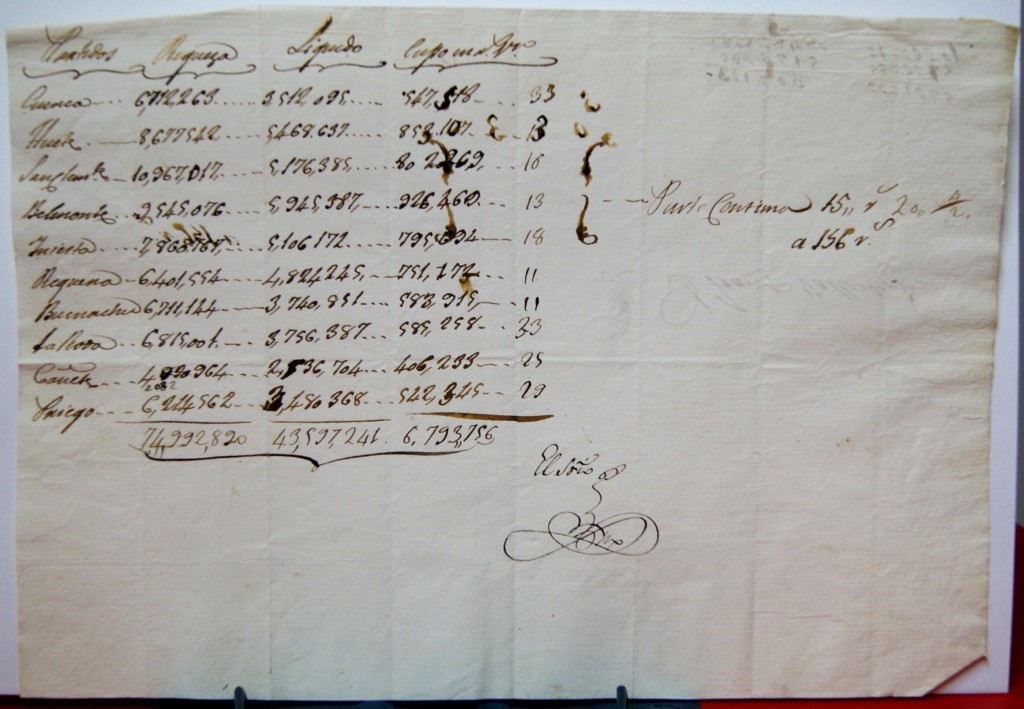 Partidos Riqueza Liquido Cupo en r. Vn.
Cuenca 6,712,263 3,512,095 547,818 33
Huete 8,677,542 5,468,637 853,107 13
Sanclemte 10,967,017 5,176,385 802,269 16
Belmonte 9,545,076 5,945,387 926,460 13
Iniesta 7,868,767 5,106,172 795,694 18
Requena 6,401,554 4,824,245 751,172 11
Buenache 6,711,144 3,740,851 583,915 11
La Roda 6,815,001 3,756,387 585,258 33
Cañete 2,536,704 406,233 25
Priego 6,224,562 3,450,368 542,345 29
74,992,820 43,597,241 6,793,756
15,, r 20,,
a 156 r.s
El Srio